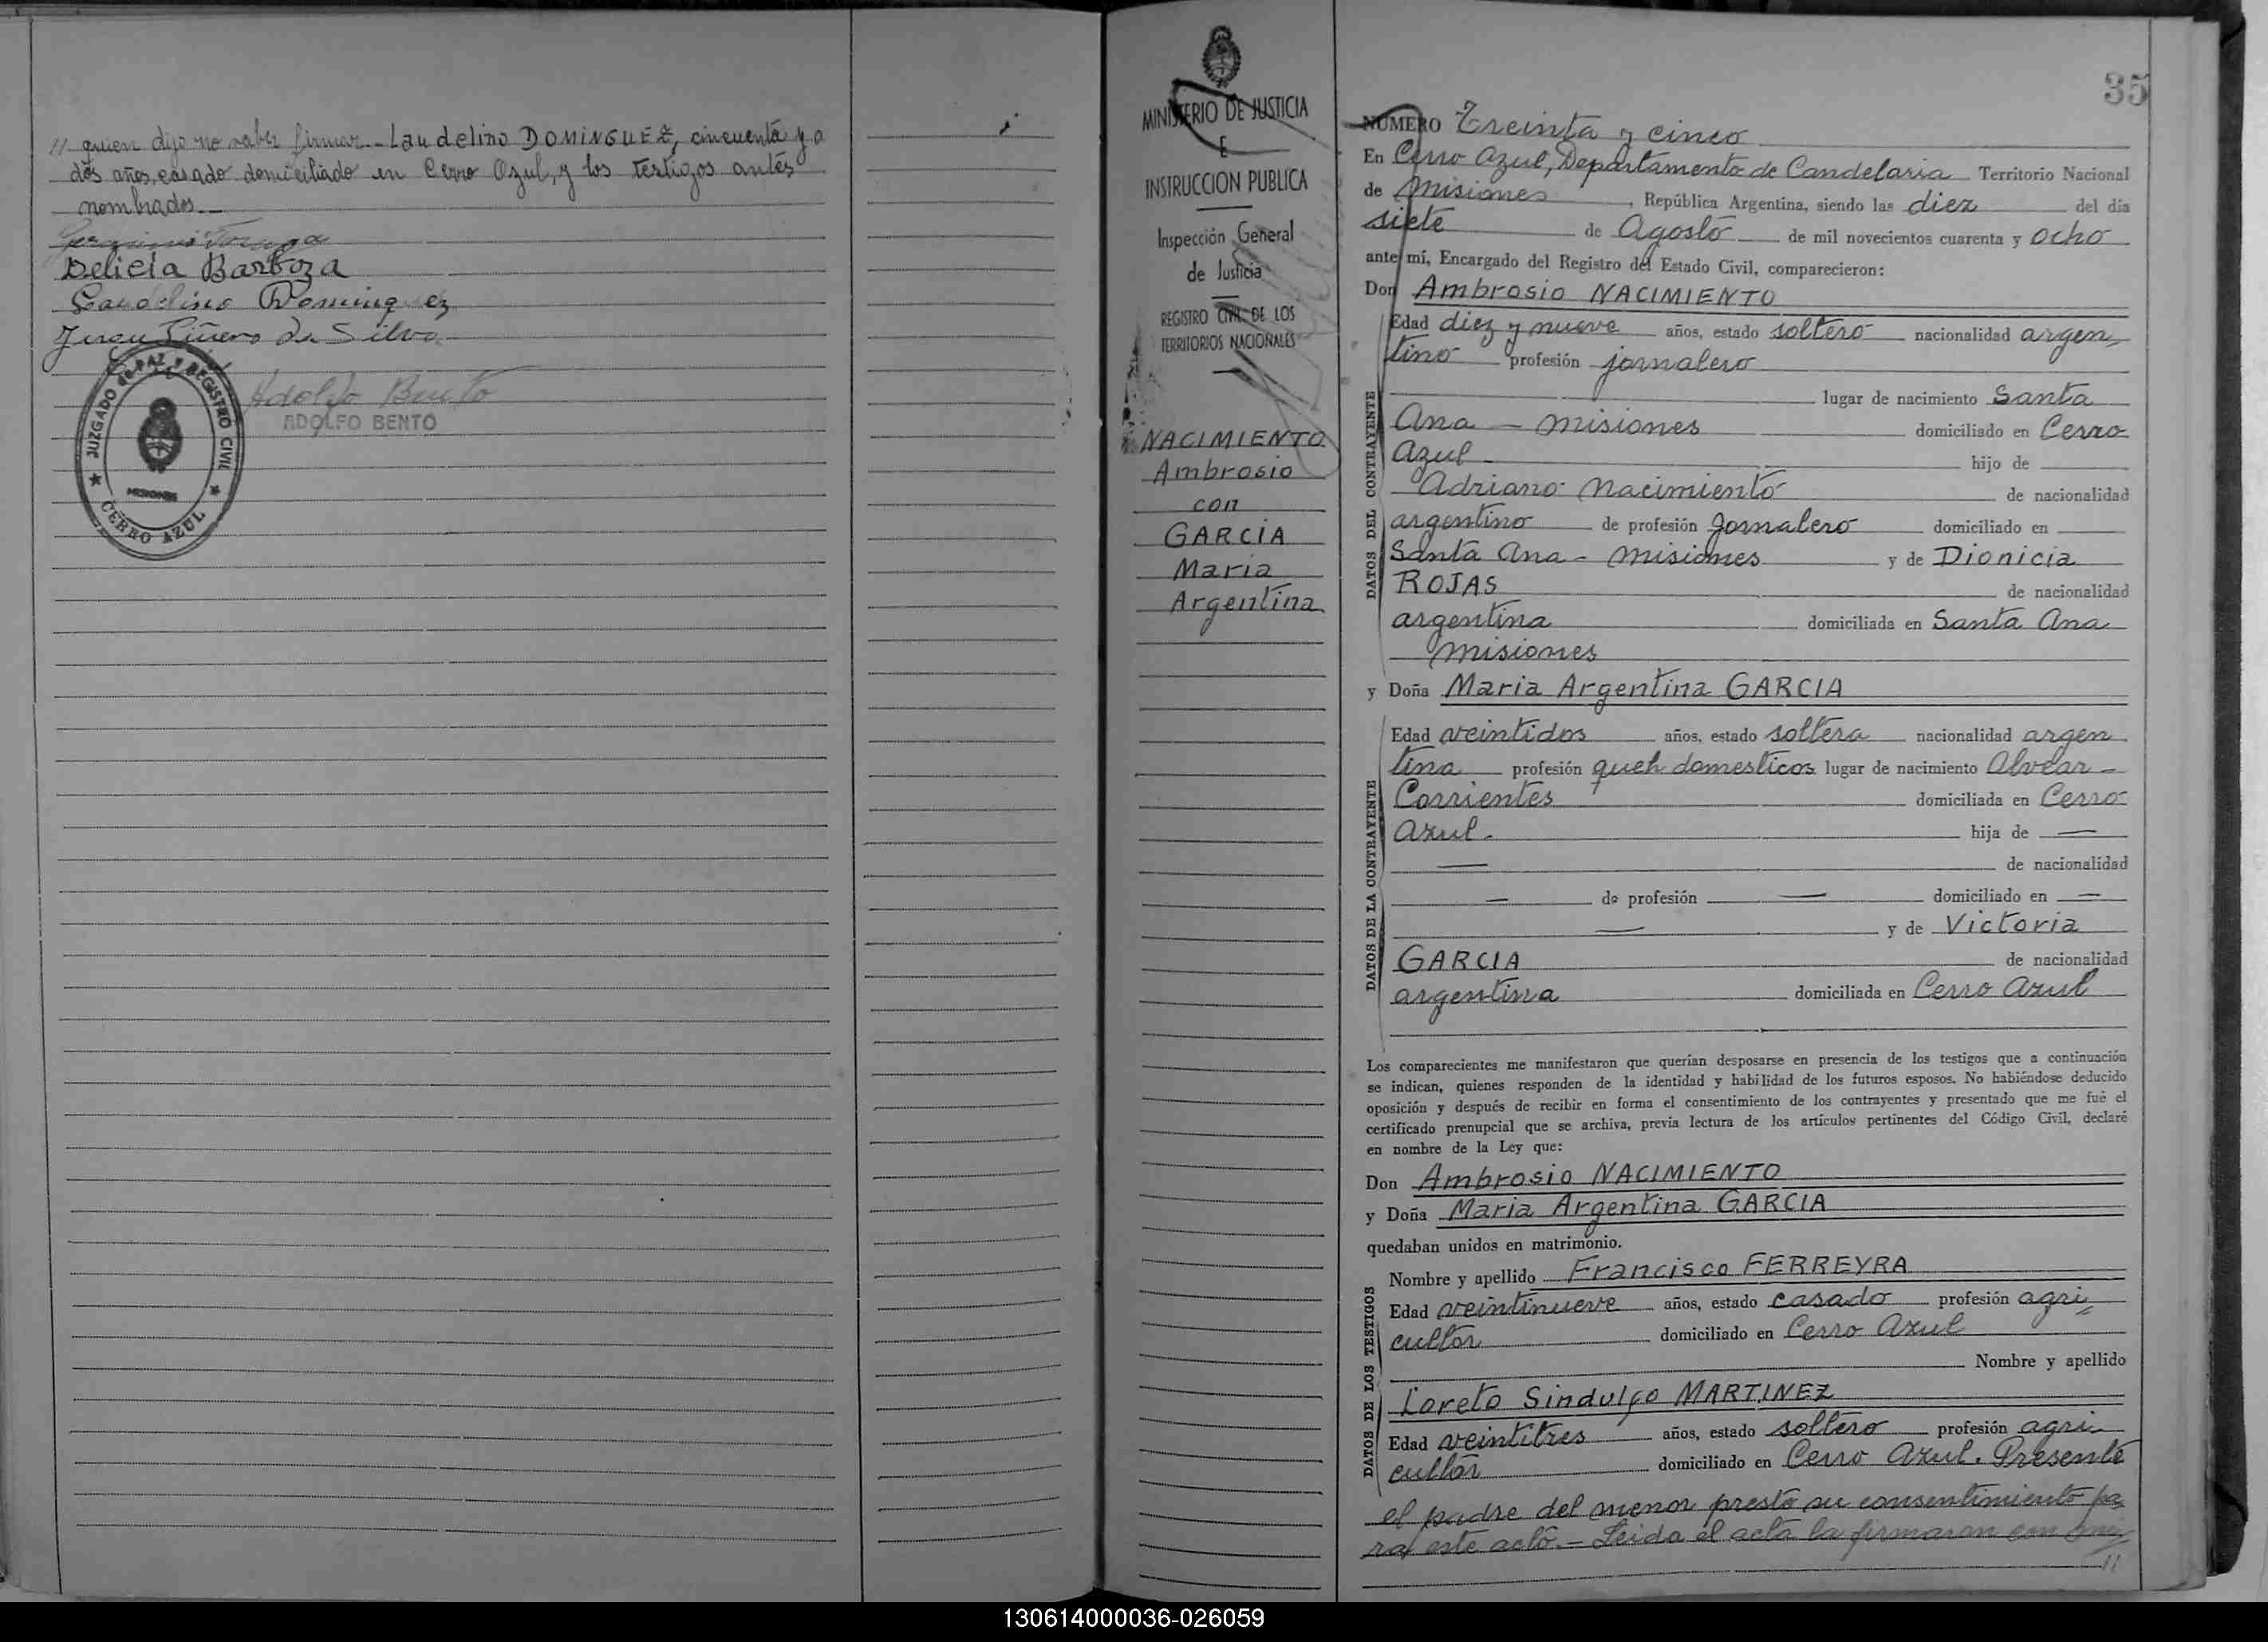 // quien dijo no saber firmar.- Laudelino DOMINGUEZ, cincuenta y
dos años, casado domiciliado en Cerro Azul, y los testigos antes
nombrados.-
Delicia Barboza
Laudelino Dominguez
Juan Piñero da Silva
Adolfo Bento
ADOLFO BENTO
JUZGADO de PAZ y REGISTRO CIVIL
MISIONES
CERRO AZUL
MINISTERIO DE JUSTICIA
E
INSTRUCCION PUBLICA
Inspección General
de Justicia
REGISTRO CIVIL DE LOS
TERRITORIOS NACIONALES
NACIMIENTO
Ambrosio
con
GARCIA
Maria
Argentina
35
NUMERO Treinta y cinco
En Cerro Azul, Departamento de Candelaria Territorio Nacional
de Misiones, República Argentina, siendo las diez del día
siete de Agosto de mil novecientos cuarenta y ocho
ante mí, Encargado del Registro del Estado Civil, comparecieron:
Don Ambrosio NACIMIENTO
DATOS DEL CONTRAYENTE
Edad diez y nueve años, estado soltero nacionalidad argen
tino profesión jornalero
lugar de nacimiento Santa
Ana - Misiones domiciliado en Cerro
Azul hijo de
Adriano Nacimiento de nacionalidad
argentino de profesión Jornalero domiciliado en
Santa Ana - Misiones y de Dionicia
ROJAS de nacionalidad
argentina domiciliada en Santa Ana
Misiones
y Doña Maria Argentina GARCIA
DATOS DE LA CONTRAYENTE
Edad veintidos años, estado soltera nacionalidad argen
tina profesión queh domesticos lugar de nacimiento Alvear -
Corrientes domiciliada en Cerro
Azul. hija de —
— de nacionalidad
— de profesión — domiciliado en —
— y de Victoria
GARCIA de nacionalidad
argentina domiciliada en Cerro Azul
Los comparecientes me manifestaron que querían desposarse en presencia de los testigos que a continuación
se indican, quienes responden de la identidad y habilidad de los futuros esposos. No habiéndose deducido
oposición y después de recibir en forma el consentimiento de los contrayentes y presentado que me fué el
certificado prenupcial que se archiva, previa lectura de los artículos pertinentes del Código Civil, declaré
en nombre de la Ley que:
Don Ambrosio NACIMIENTO
y Doña Maria Argentina GARCIA
quedaban unidos en matrimonio.
DATOS DE LOS TESTIGOS
Nombre y apellido Francisco FERREYRA
Edad veintinueve años, estado casado profesión agri
cultor domiciliado en Cerro Azul
Nombre y apellido
Loreto Sindulfo MARTINEZ
Edad veintitres años, estado soltero profesión agri-
cultor domiciliado en Cerro Azul. Presente
el padre del menor presto su consentimiento pa
ra este acto.- Leida el acta la firmaron con
//
130614000036-026059